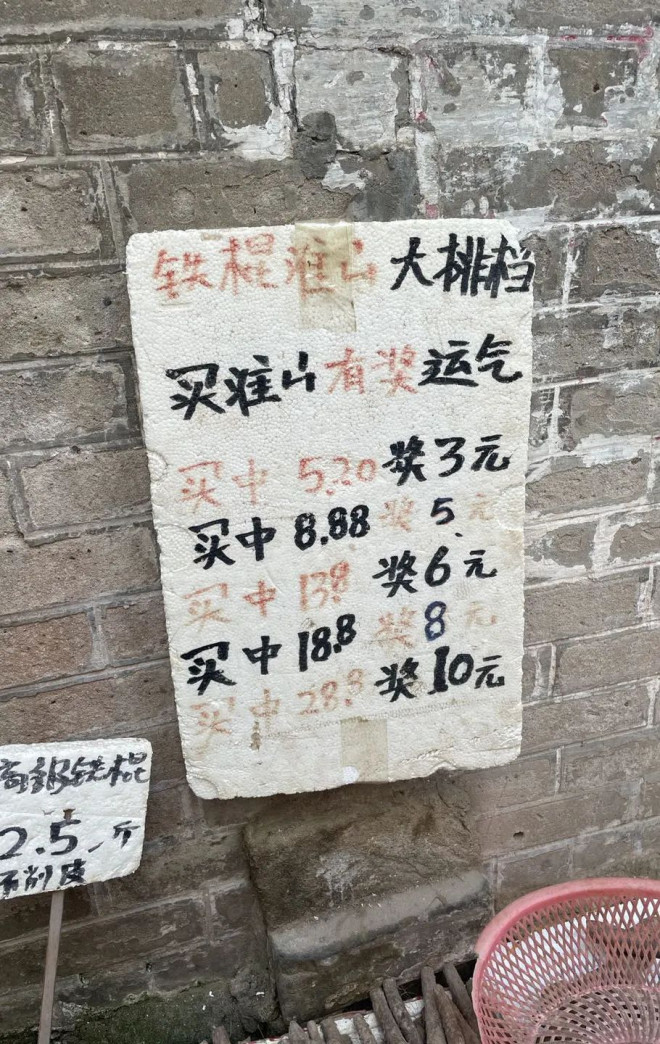 铁棍淮山大排档
买淮山有奖运气
买中 5.20 奖3元
买中 8.88 奖 5元
买中 13.8 奖6元
买中 18.8 奖 8元
买中 28.8 奖10元
铁棍
2.5斤
不削皮